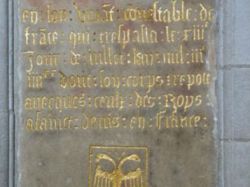 en son vivāt conestable de
frāce qui trespassa le xiiiᵉ
Jour de iullet lan mil iiiᶜ
iiiiˣˣ dont son corps repose
avecques ceulx des Roys
a sainct denis en france